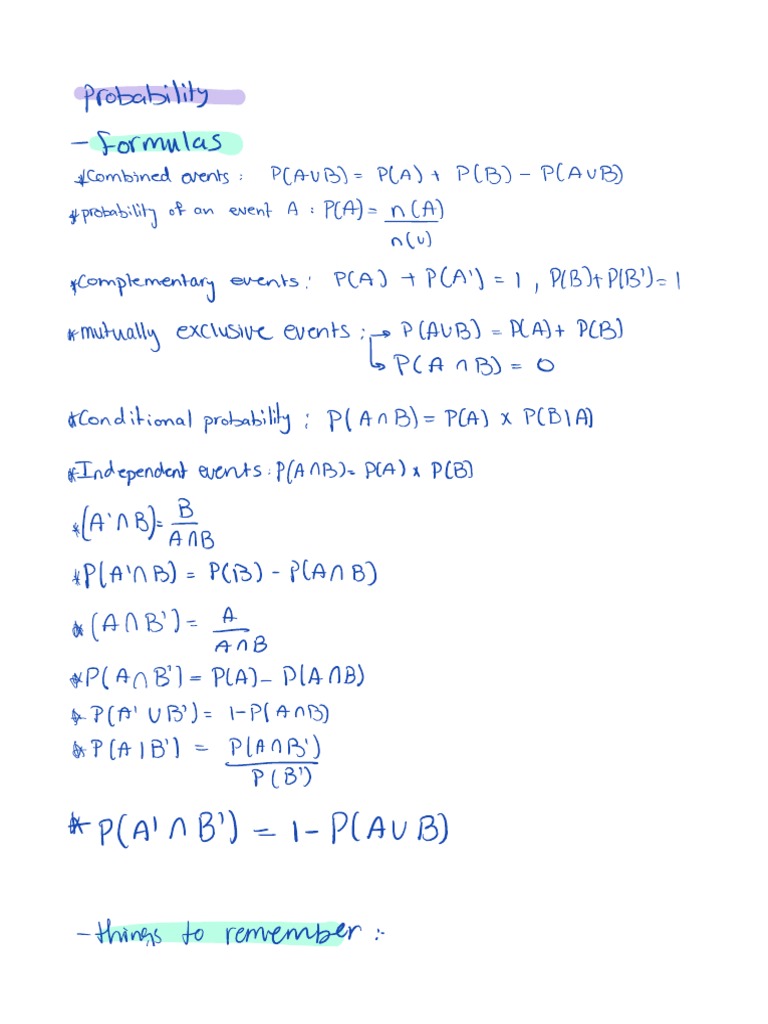 Probability
- formulas
*Combined events: P(A∪B) = P(A) + P(B) - P(A∪B)
*probability of an event A : P(A) = n(A)/n(u)
*Complementary events: P(A) + P(A') = 1 , P(B)+P(B') = 1
*mutually exclusive events :→ P(A∪B) = P(A)+ P(B)
↳ P(A ∩ B) = 0
*Conditional probability : P(A∩B) = P(A) x P(B|A)
*Independent events: P(A∩B) = P(A) x P(B)
*(A'∩B) = B/A∩B
*P(A'∩B) = P(B) - P(A∩B)
*(A∩B') = A/A∩B
*P(A∩B') = P(A) - P(A∩B)
*P(A' ∪B') = 1-P(A∩B)
*P(A|B') = P(A∩B')/P(B')
* P(A'∩B') = 1- P(A∪B)
- things to remember :-